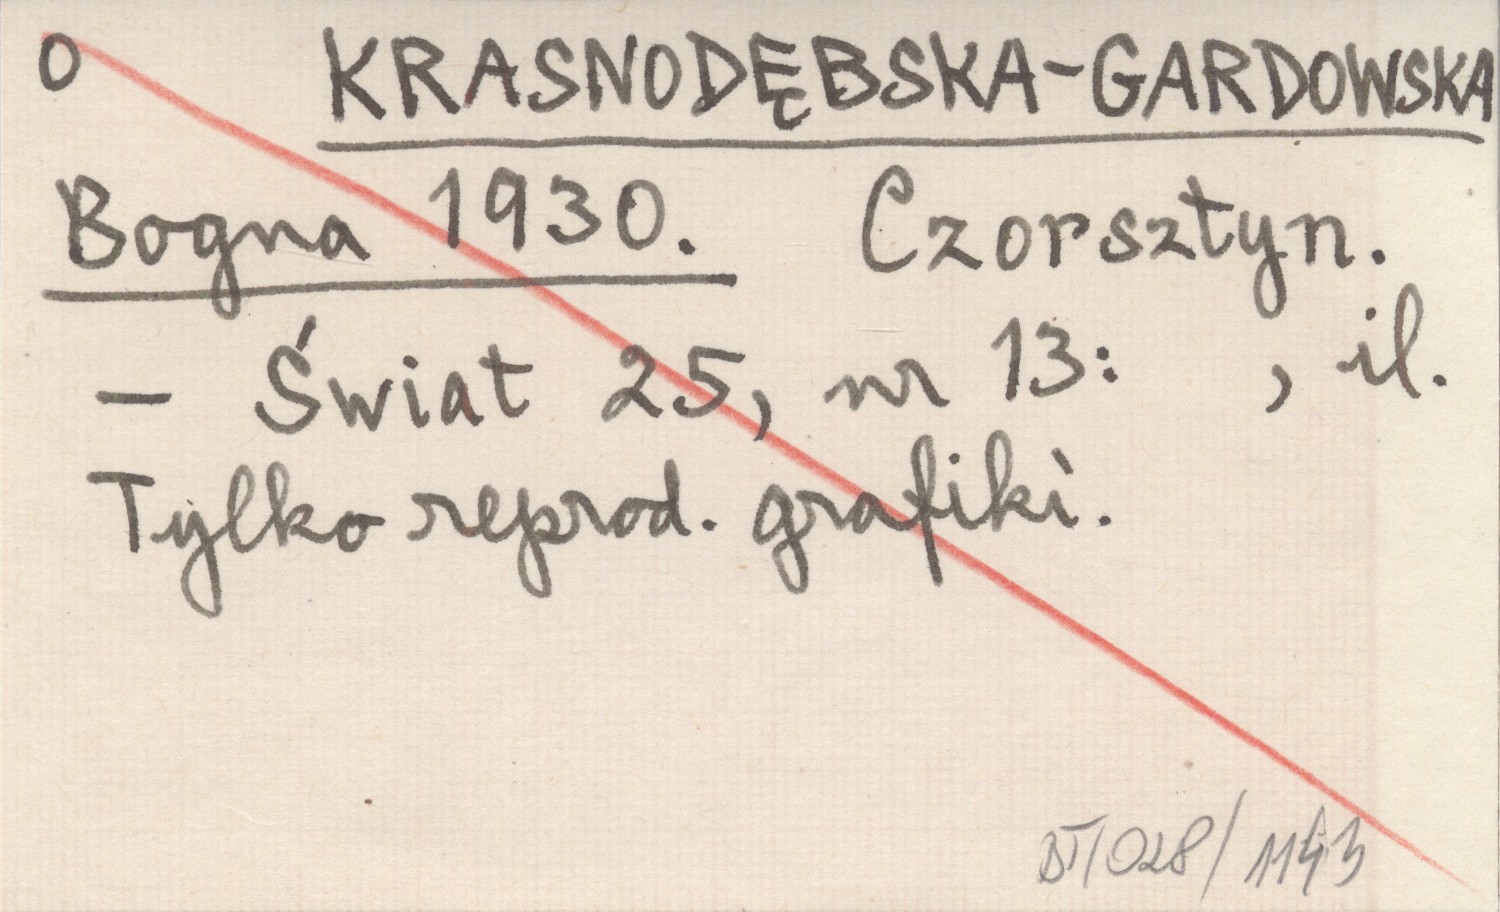 O KRASNODĘBSKA-GARDOWSKA
Bogna 1930. Czorsztyn.
– Świat 25, nr 13: , il.
Tylko reprod. grafiki.
BT/028/1143